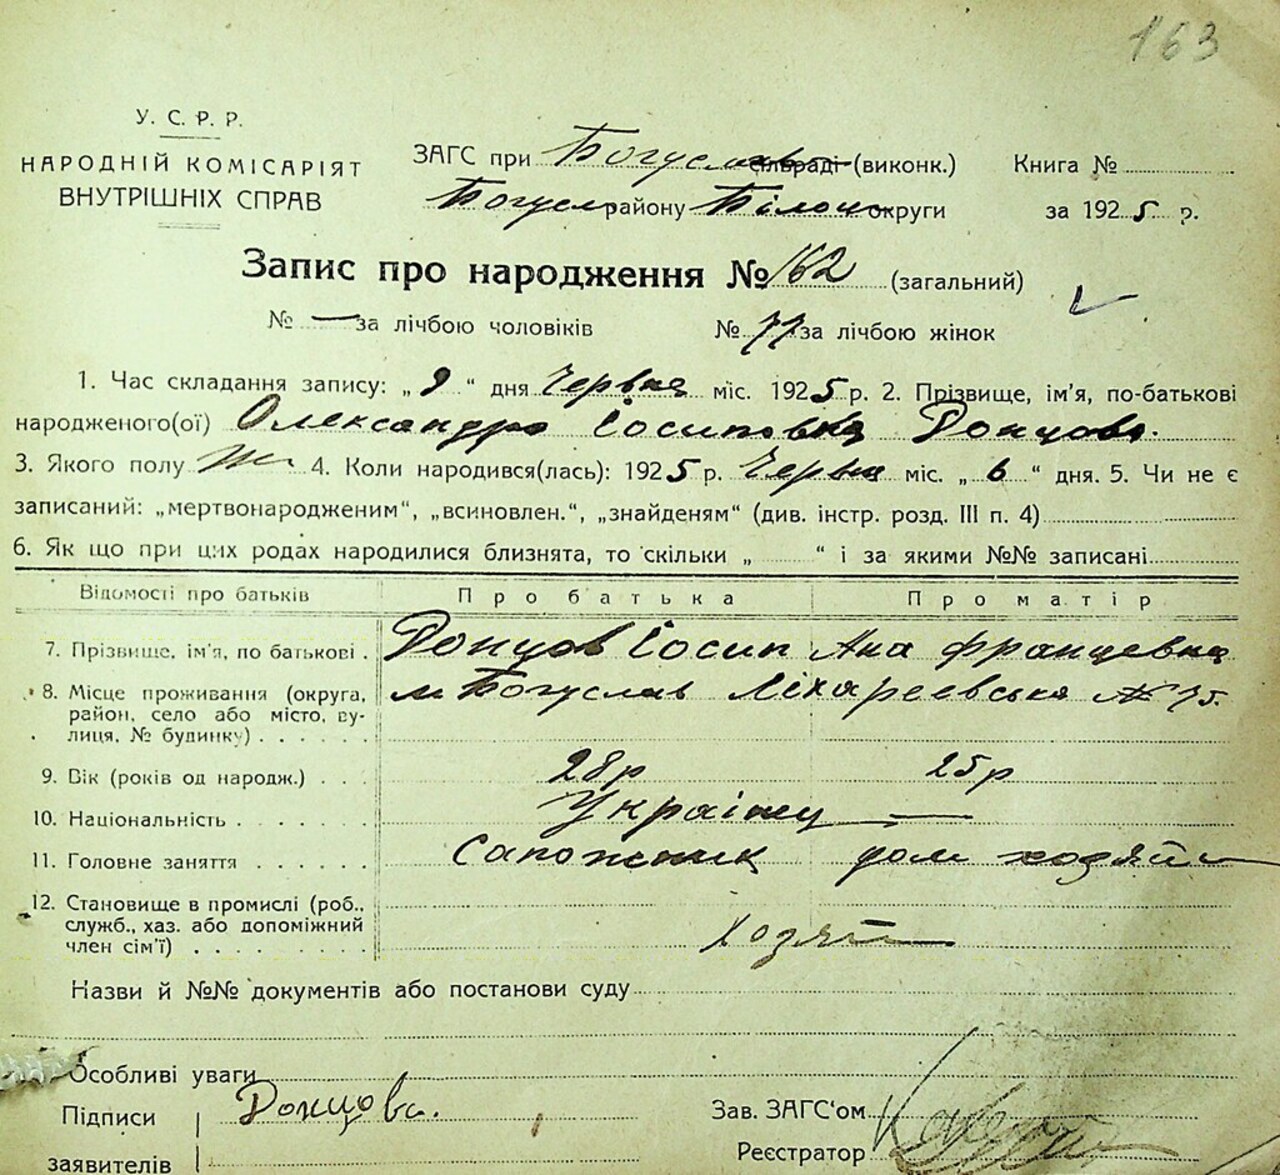 163
У. С. Р. Р.
НАРОДНІЙ КОМІСАРІЯТ
ВНУТРІШНІХ СПРАВ
ЗАГС при Богуслав сільраді (виконк.)
Книга №
Богусл району Білоц округи
за 1925 р.
Запис про народження № 162 (загальний)
№ — за лічбою чоловіків
№ 77 за лічбою жінок
1. Час складання запису: „ 9 “ дня Червня міс. 1925 р. 2. Прізвище, ім'я, по-батькові
народженого(ої) Олександра Сосиповна Донцова.
3. Якого полу Ж 4. Коли народився(лась): 1925 р. Червня міс. „ 6 “ дня. 5. Чи не є
записаний: „мертвонародженим“, „всиновлен.“, „знайденям“ (див. інстр. розд. III п. 4)
6. Як що при цих родах народилися близнята, то скільки „ “ і за якими №№ записані
Відомості про батьків
Про батька
Про матір
7. Прізвище, ім'я, по батькові .
Донцов Сосип
Ана Францевна
8. Місце проживання (округа,
район, село або місто, ву-
лиця, № будинку) . . . . . .
м Богуслав Ліхареевська № 75.
9. Вік (років од народж.) . . .
28р
25р
10. Національність . . . . . .
Украінці —
11. Головне заняття . . . . . .
Сапожник
дом хозяйн
12. Становище в промислі (роб.,
служб., хаз. або допоміжний
член сім'ї) . . . . . . . .
Хозят
Назви й №№ документів або постанови суду
Особливі уваги
Підписи
заявителів
Донцова.
Зав. ЗАГС'ом
Реєстратор